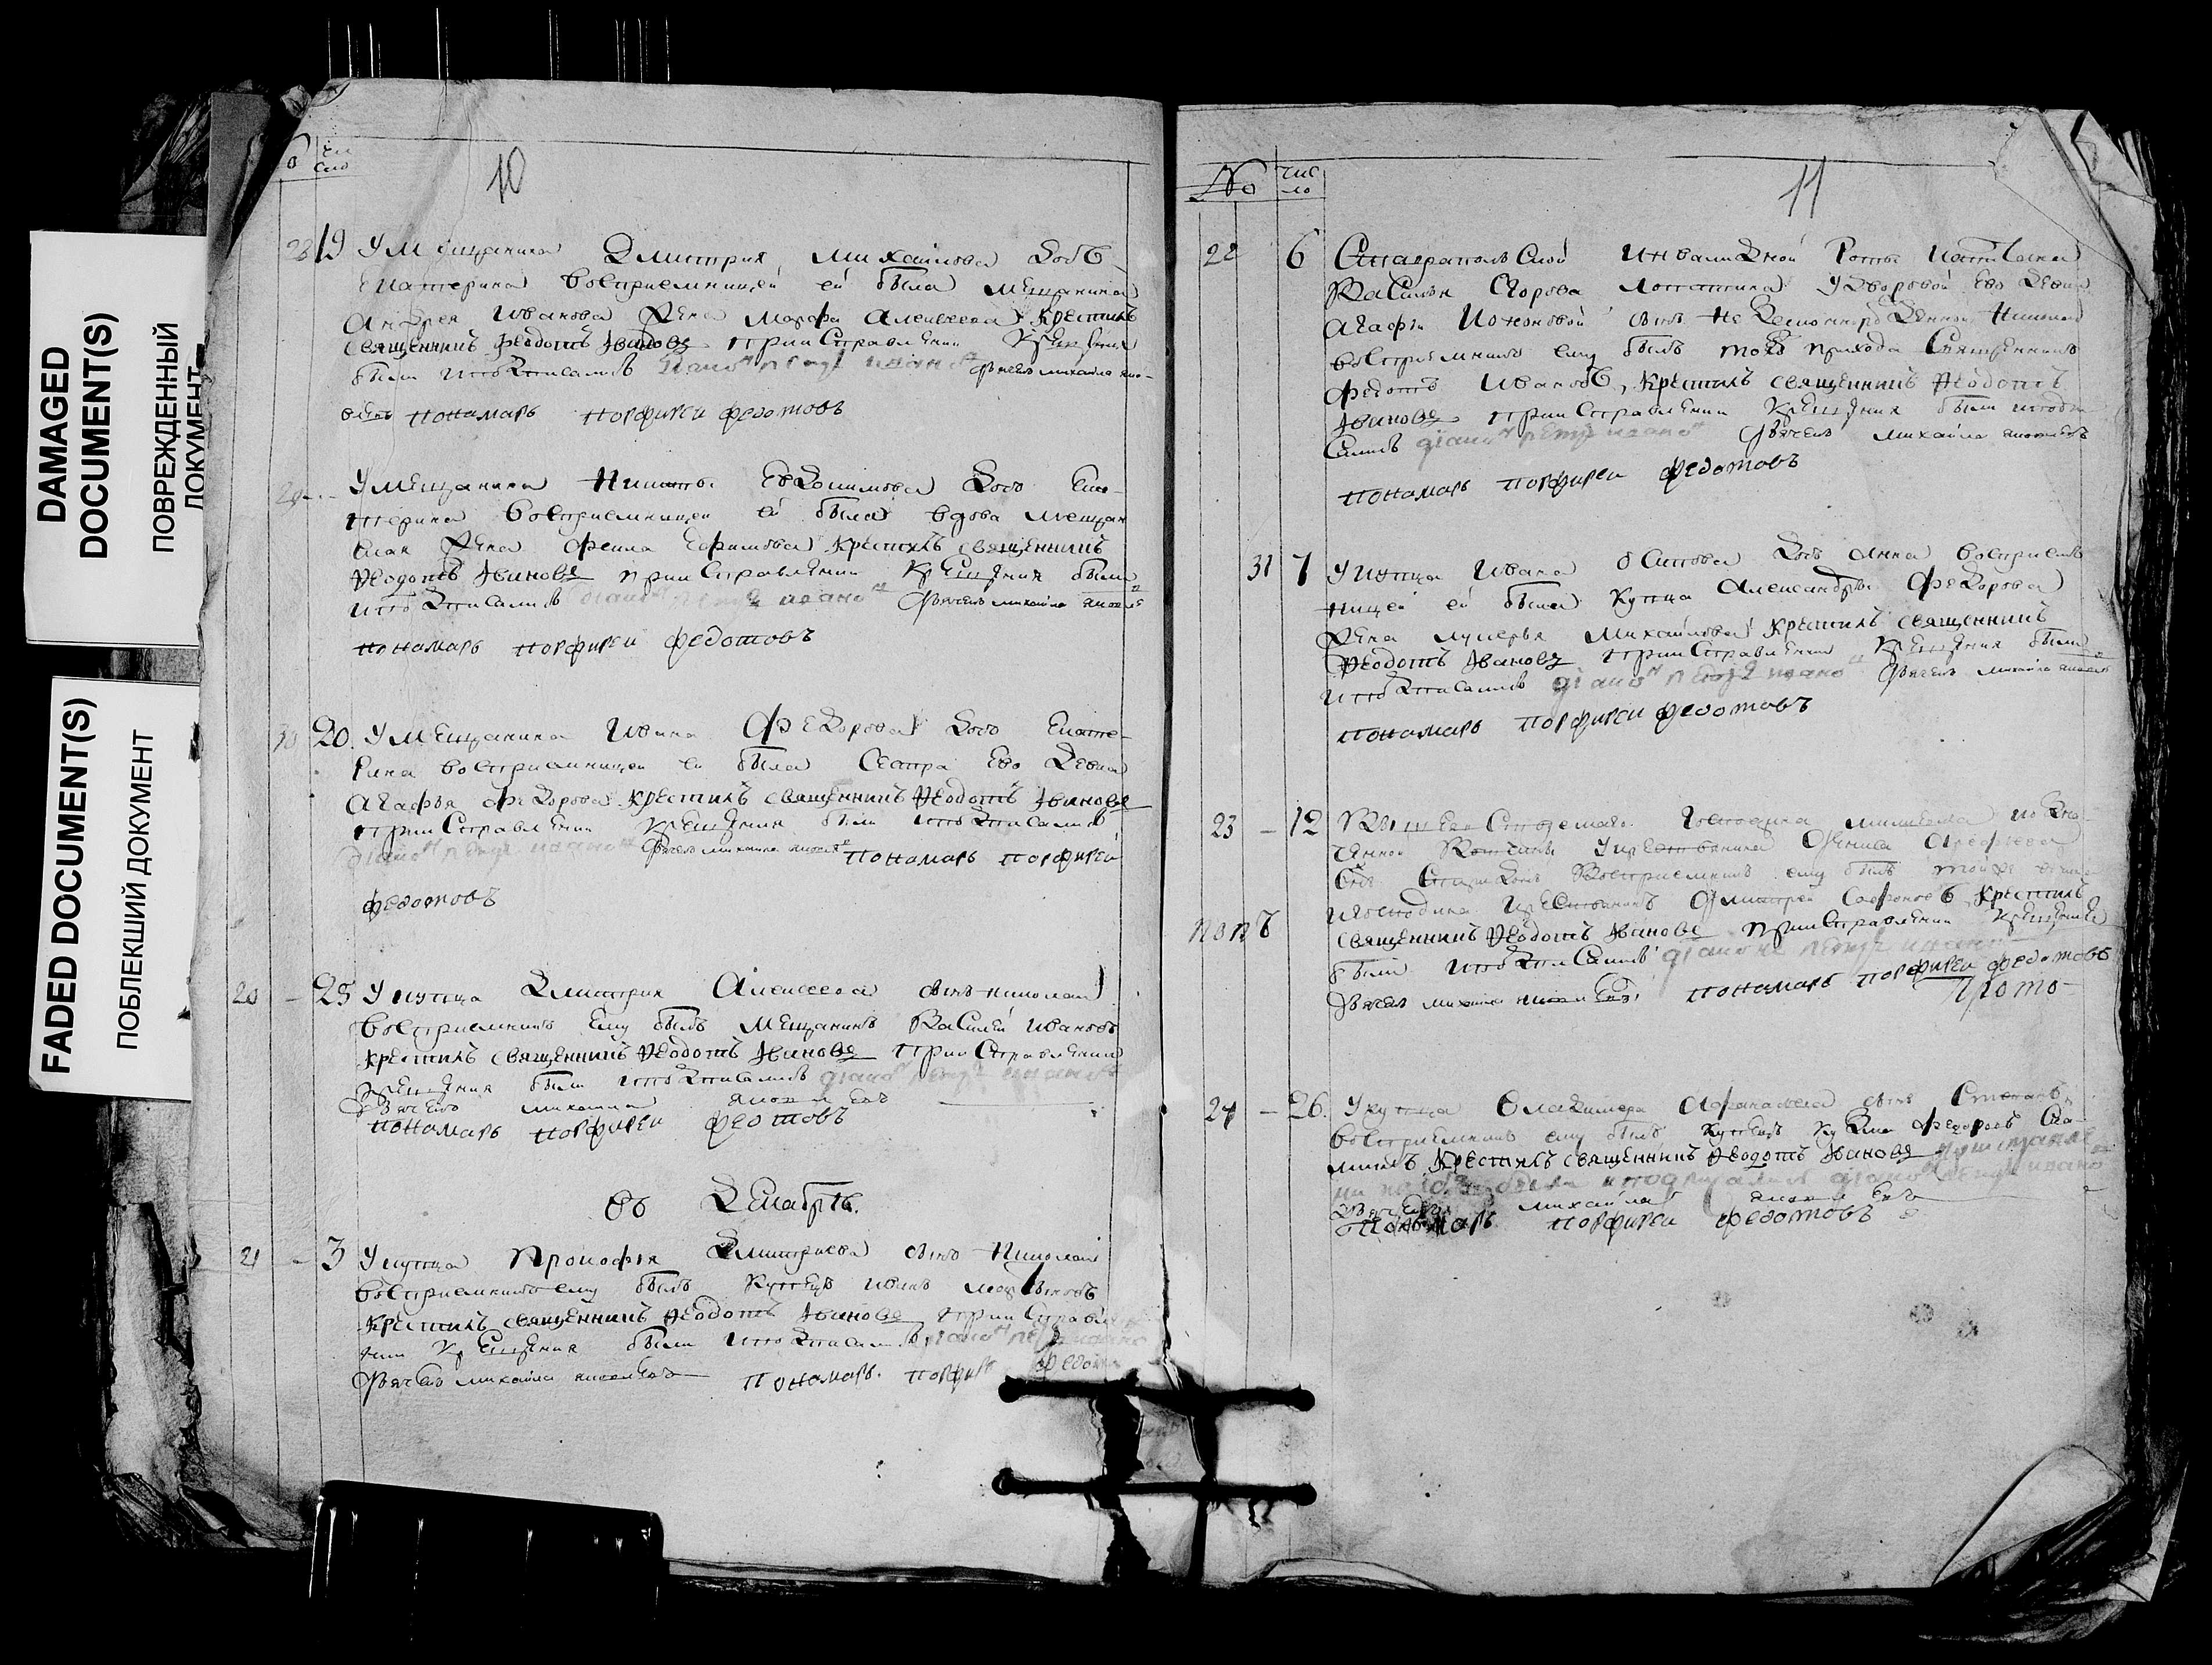 DAMAGED
DOCUMENT(S)
ПОВРЕЖДЕННЫЙ
ДОКУМЕНТ
FADED DOCUMENT(S)
ПОБЛЕКШИЙ ДОКУМЕНТ
чи
сло
10
28 19 У мещанина Дмитрия Михаилова дочь
Екатерина восприемницей ей была мещанина
Андрея Иванова жена Марфа Алексеева крестилъ
священникъ Феодотъ Iвановъ при исправлении крещения
были и подписались диаконъ Петръ Ивановъ дьячекъ михайла
пономарь порфирей федотовъ
29 - У мещанина Никиты Евдокимова дочь Ека-
терина восприемницей ей была вдова мещан
ская жена Фекла Ефимова крестилъ священникъ
Феодотъ Iвановъ при исправлении крещения были
и подписались диаконъ Петръ Ивановъ дьячекъ михайла
пономарь порфирей федотовъ
30 20. У мещанина Ивана Федорова дочь Екате-
рина восприемницей ей была сестра его девка
Агафья Федорова крестилъ священникъ Феодотъ Iвановъ
при исправлении крещения были и подписались
диаконъ Петръ Ивановъ дьячекъ михайла пономарь порфирей
федотовъ
20 - 25 У купца Дмитрия Алексеева сынъ Николай
восприемникъ ему былъ мещанинъ Василей Ивановъ
крестилъ священникъ Феодотъ Iвановъ при исправлении
крещения были и подписались диаконъ Петръ Ивановъ
дьячекъ михайла
пономарь порфирей федотовъ
Въ Декабрѣ.
21 - 3 У купца Прокофья Дмитриева сынъ Николай
восприемникъ ему былъ купецъ Иванъ
крестилъ священникъ Феодотъ Iвановъ при исправле
нии крещения были и подписались диаконъ Петръ Ивановъ
дьячекъ михайла пономарь. порфирей федотовъ
№ чис
ло
11
22 6 Ставропольской инвалидной роты
Василья Егорова у дворовой его девки
Агафьи сынъ незаконнорожденной Николай
восприемникъ ему былъ тогожъ прихода священникъ
Федотъ Ивановъ, крестилъ священникъ Феодотъ
Iвановъ при исправлении крещения были и подпи
сались диаконъ Петръ Ивановъ дьячекъ михайла
пономарь порфирей федотовъ
31 7 У купца Ивана Осипова дочь Анна восприем
ницей ей была купца Александры Федорова
жена Лукерья Михайлова крестилъ священникъ
Феодотъ Iвановъ при исправлении крещения были
и подписались диаконъ Петръ Ивановъ дьячекъ михайла
пономарь порфирей федотовъ
23 - 12 господина
у крестьянина
сынъ Спиридонъ восприемникъ ему былъ тойже
господина крестьянинъ Дмитрей Сафоновъ крестилъ
священникъ Феодотъ Iвановъ при исправлении крещения
были и подписались диаконъ Петръ Ивановъ
дьячекъ михайла пономарь порфирей федотовъ
Прото-
попъ
24 - 26. У купца Владимера Афанасьева сынъ Степанъ,
восприемникъ ему былъ купецъ Кузма Федоровъ
крестилъ священникъ Феодотъ Iвановъ
были и подписались диаконъ Петръ Ивановъ
дьячекъ михайла
пономарь порфирей федотовъ